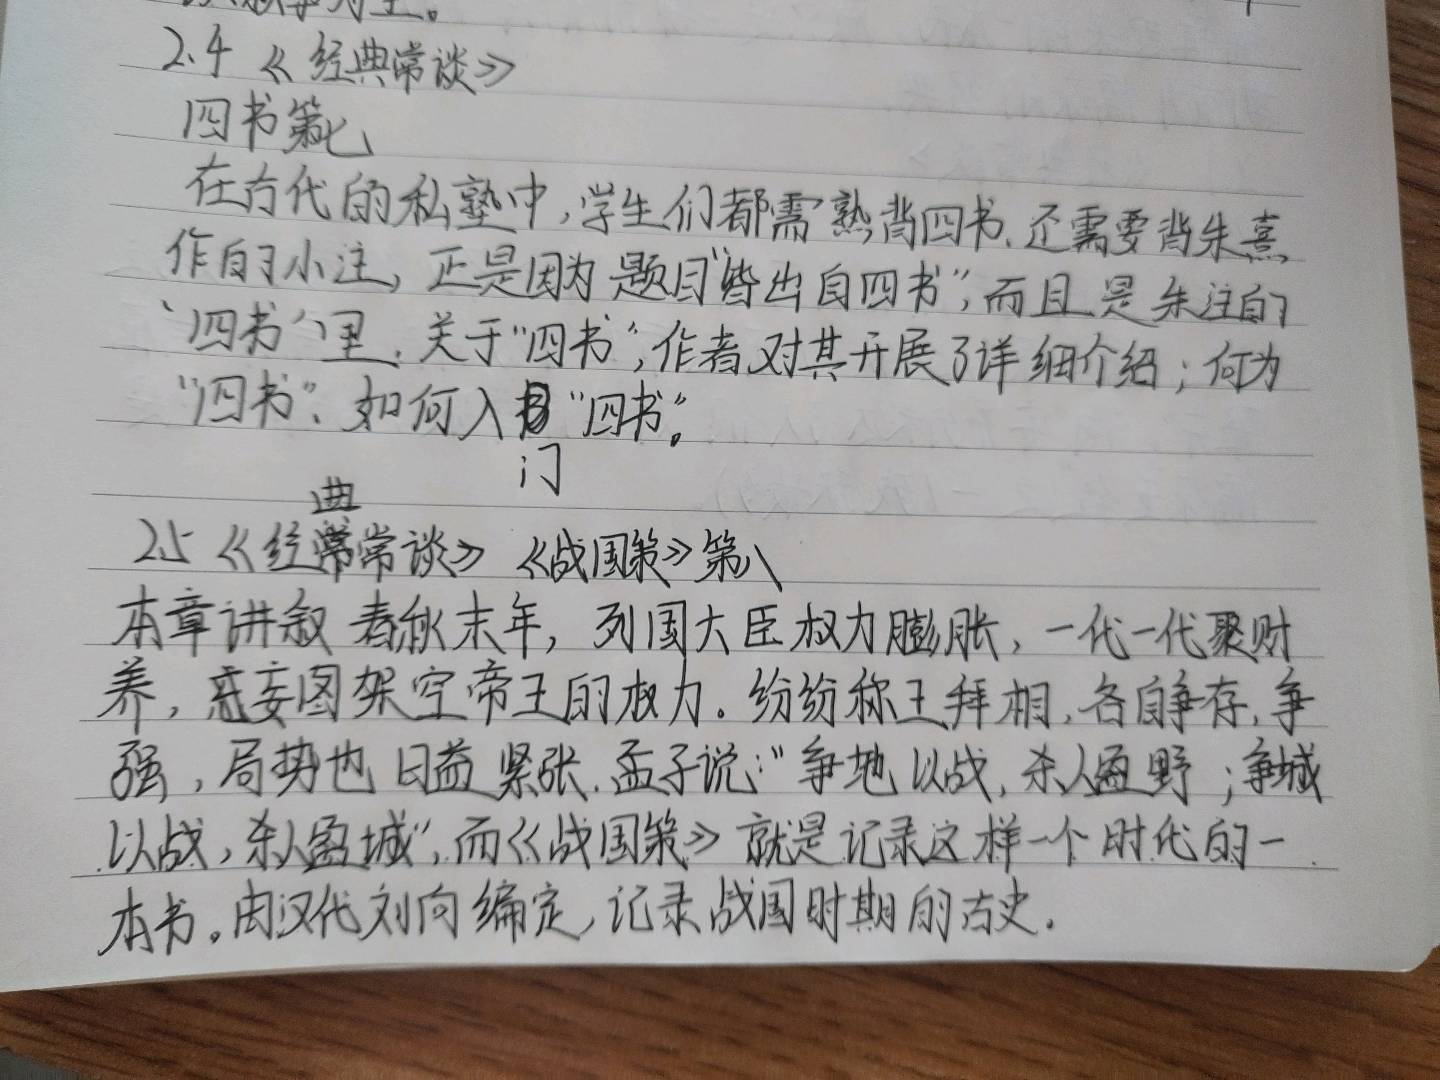 2.4《经典常谈》
四书第七
在古代的私塾中,学生们都需熟背四书、还需要背朱熹
作的小注,正是因为题目“皆出自四书”,而且是朱注的
“四书”里、关于“四书”,作者对其开展了详细介绍;何为
“四书”、如何入“四书”。
门
典
2.5《经常谈》《战国策》第八
本章讲叙春秋末年,列国大臣权力膨胀,一代一代聚财
养,妄图架空帝王的权力。纷纷称王拜相,各自争存,争
强,局势也日益紧张.孟子说:“争地以战,杀人盈野;争城
以战,杀人盈城”,而《战国策》就是记录这样一个时代的一
本书。由汉代刘向编定,记录战国时期的古史.